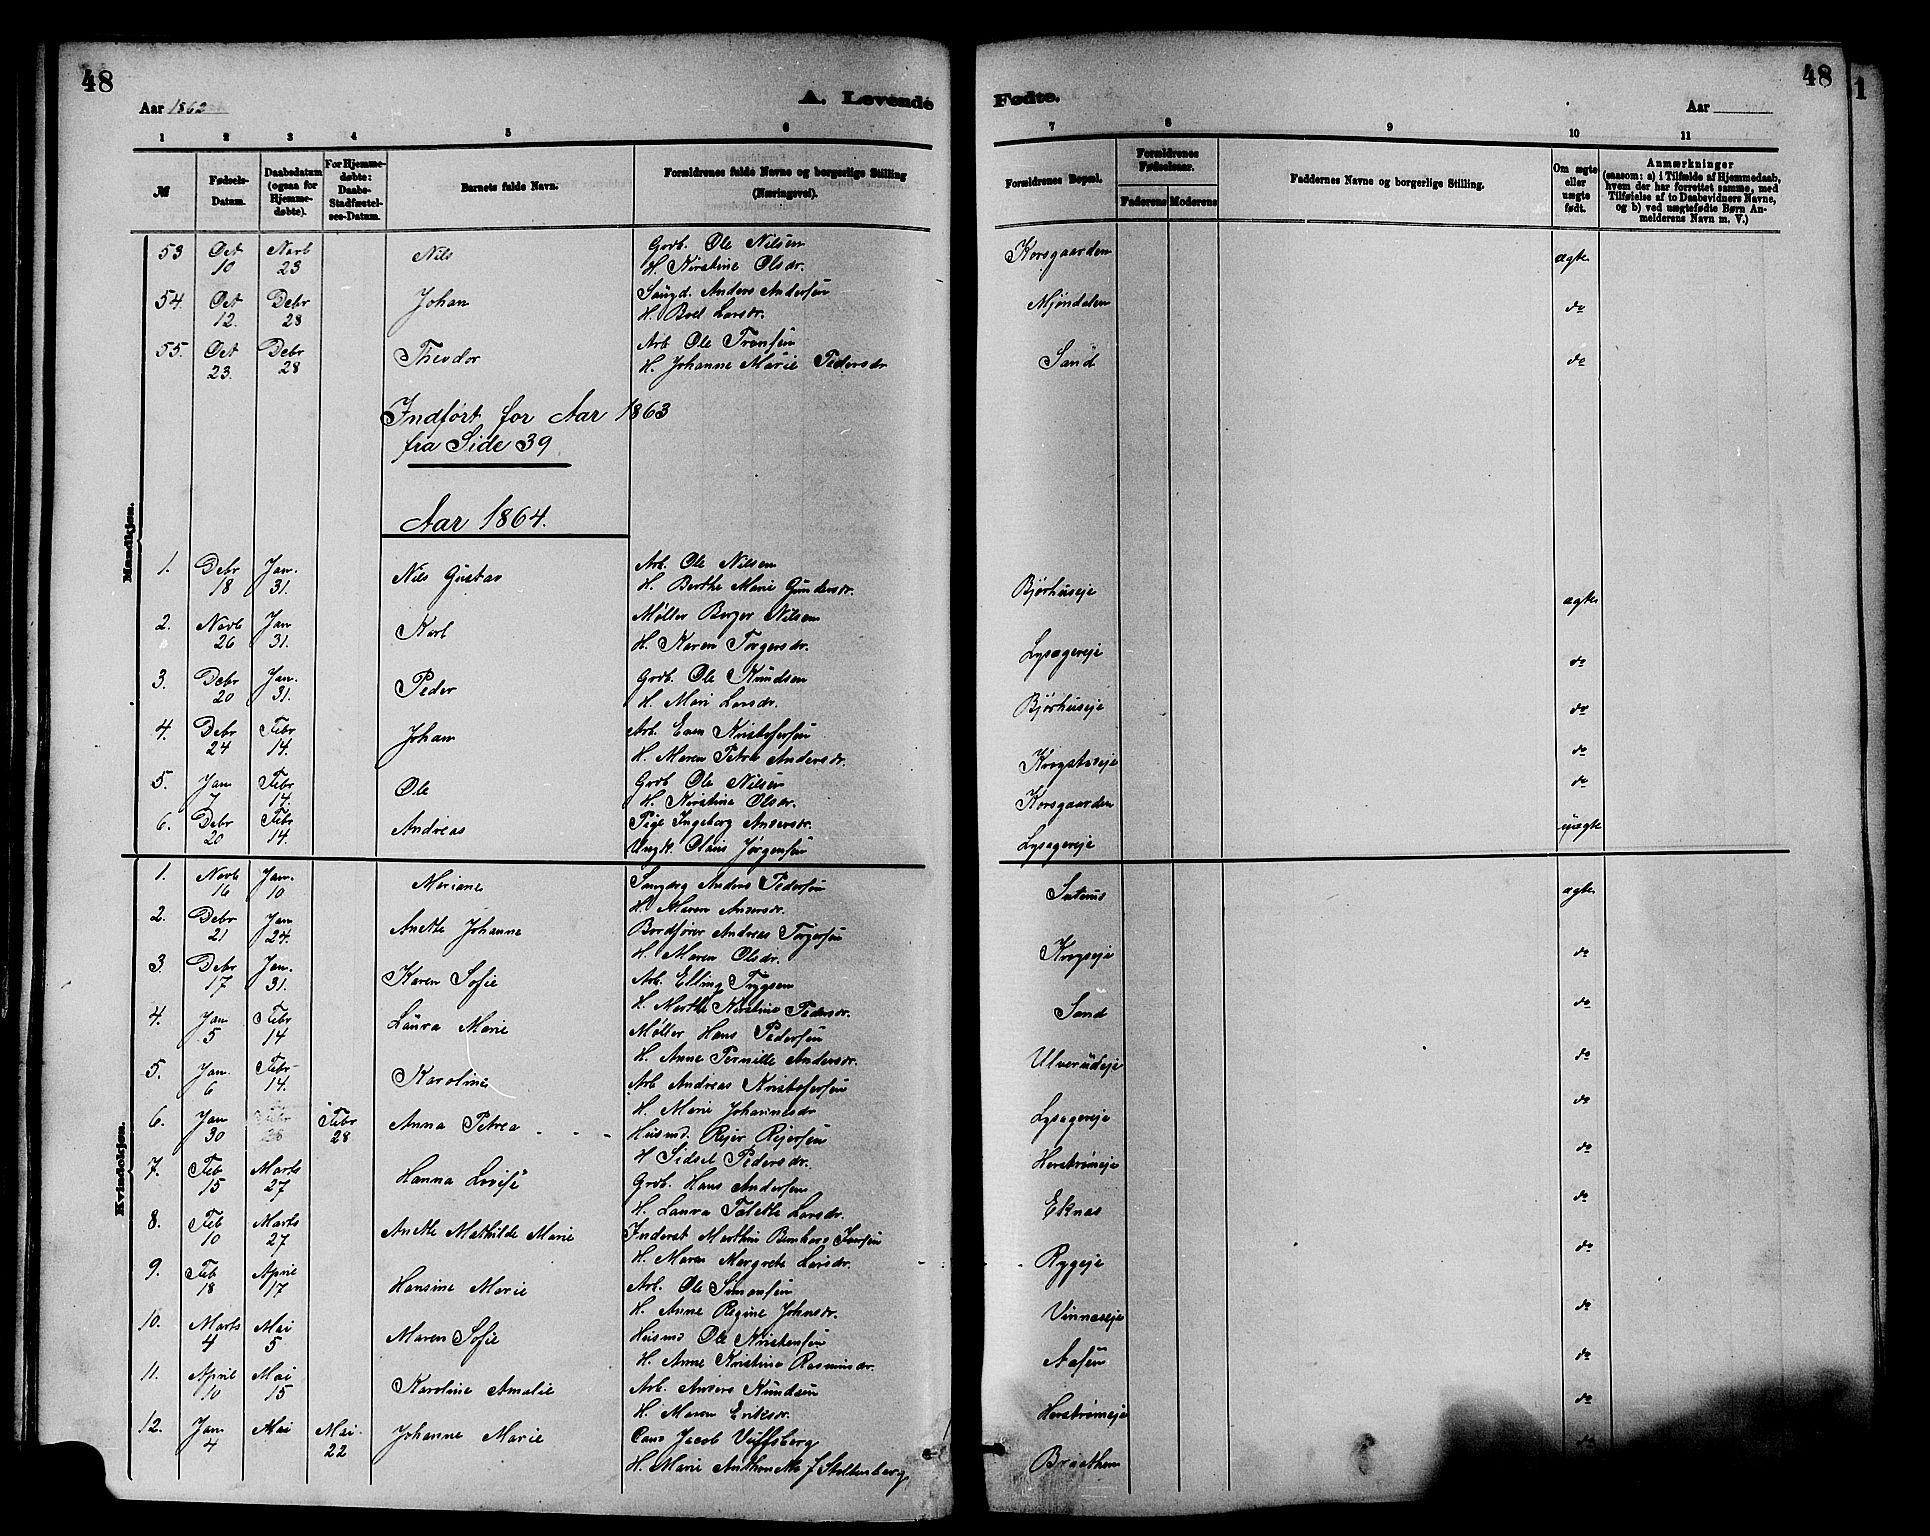 48
Aar 1862
A. Levende
Fødte.
Aar
48
1
1 2 3 4 5 6 7 8 9 10 11
№
Fødsels-Datum.
Daabsdatum (ogsaa for Hjemmedøbte).
For Hjemmedøbte: Daabs-Stadfæstelses-Datum.
Barnets fulde Navn.
Forældrenes fulde Navne og borgerlige Stilling (Næringsvei).
Forældrenes Bopæl.
Forældrenes Fødselsaar.
Faderens Moderens
Faddernes Navne og borgerlige Stilling.
Om ægte eller uægte født.
Anmærkninger
(saasom: a) i Tilfælde af Hjemmedaab, hvem der har forrettet samme, med Tilføielse af to Daabsvidners Navne, og b) ved uægtefødte Børn Anmelderens Navn m. V.)
Mandkjøn.
53 Oct 10 Novb 23 Nils Grdb. Ole Nilsen Korsgaarden ægte
H. Kirstine Olsdr.
54. Oct 12. Debr 28 Johan Saugd. Anders Andersen Mjøndalen do
H. Boel Larsdr.
55. Oct 23. Debr 28 Theodor Arb. Ole Fransen Sand do
H. Johanne Marie Pedersdr
Indført for Aar 1863
fra Side 39
Aar 1864.
1. Debr 18 Jan. 31. Nils Gustav Arb. Ole Nilsen Bjørhuseje ægte
H. Berthe Marie Gundersdr.
2. Novb 26 Jan 31. Karl Møller Berger Nilsen Lysagereje do
H. Karen Torgersdr.
3. Debr 20 Jan. 31. Peder Grdb. Ole Knudsen Bjørhuseje do
H. Mari Larsdr.
4. Debr 24 Febr 14. Johan Arb. Even Kristofersen Krogstadeje do
H. Maren Petra Andersdr.
5. Jan 7 Febr 14. Ole Grdb Ole Nilsen Korsgaarden do
H. Kirstine Olsdr.
6. Debr 20 Febr 14. Andreas Pige Ingeborg Andersdr. Lysagereje uægte
Ungk. Olaus Jørgensen
Kvindekjøn.
1. Novb 16 Jan. 10 Mariane Anders Pedersen ægte
H. Maren Andersdr.
2. Debr 21 Jan 24. Anette Johanne Bordfører Andreas Torgersen Krogseje do
H. Maren Olsdr.
3. Debr 17 Jan. 31. Karen Sofie Arb. Elling Trygsen Sand do
H. Marthe Kirstine Pedersdr.
4. Jan 5 Febr 14 Laura Marie Møller Hans Pedersen Ulverudeje do
H. Anne Pernille Andersdr.
5. Jan. 6 Febr 14. Karoline Arb Andreas Kristofersen Lysagereje do
H. Marie Johannesdr
6. Jan 30 Febr 28 Febr 28 Anna Petrea Husmd. Rejer Rejersen Horstrømeje do
H Sidsel Pedersdr.
7. Feb 15 Marts 27 Hanna Lovise Grdb. Hans Andersen Eknas do
H. Laura Talette Larsdr.
8. Feb 10 Marts 27 Anette Mathilde Marie Inderst Marthin Bernhard Iversen Ryggeje do
H. Maren Margrete Larsdr.
9. Feb 18 April 17 Hansine Marie Arb. Ole Simonsen Vinneseje do
H. Anne Regine Johnsdr.
10. Marts 4 Mai 5 Maren Sofie Husmd Ole Kristensen Aasen do
H. Anne Kristine Rasmusdr.
11. April 10 Mai 15 Karoline Amalie Arb. Anders Knudsen Horstrømeje do
H. Maren Eriksdr.
12. Jan 4 Mai Mai 22 Johanne Marie Cand Jacob Viffsberg Braathen do
H. Marie Anthonette f Stoltenberg